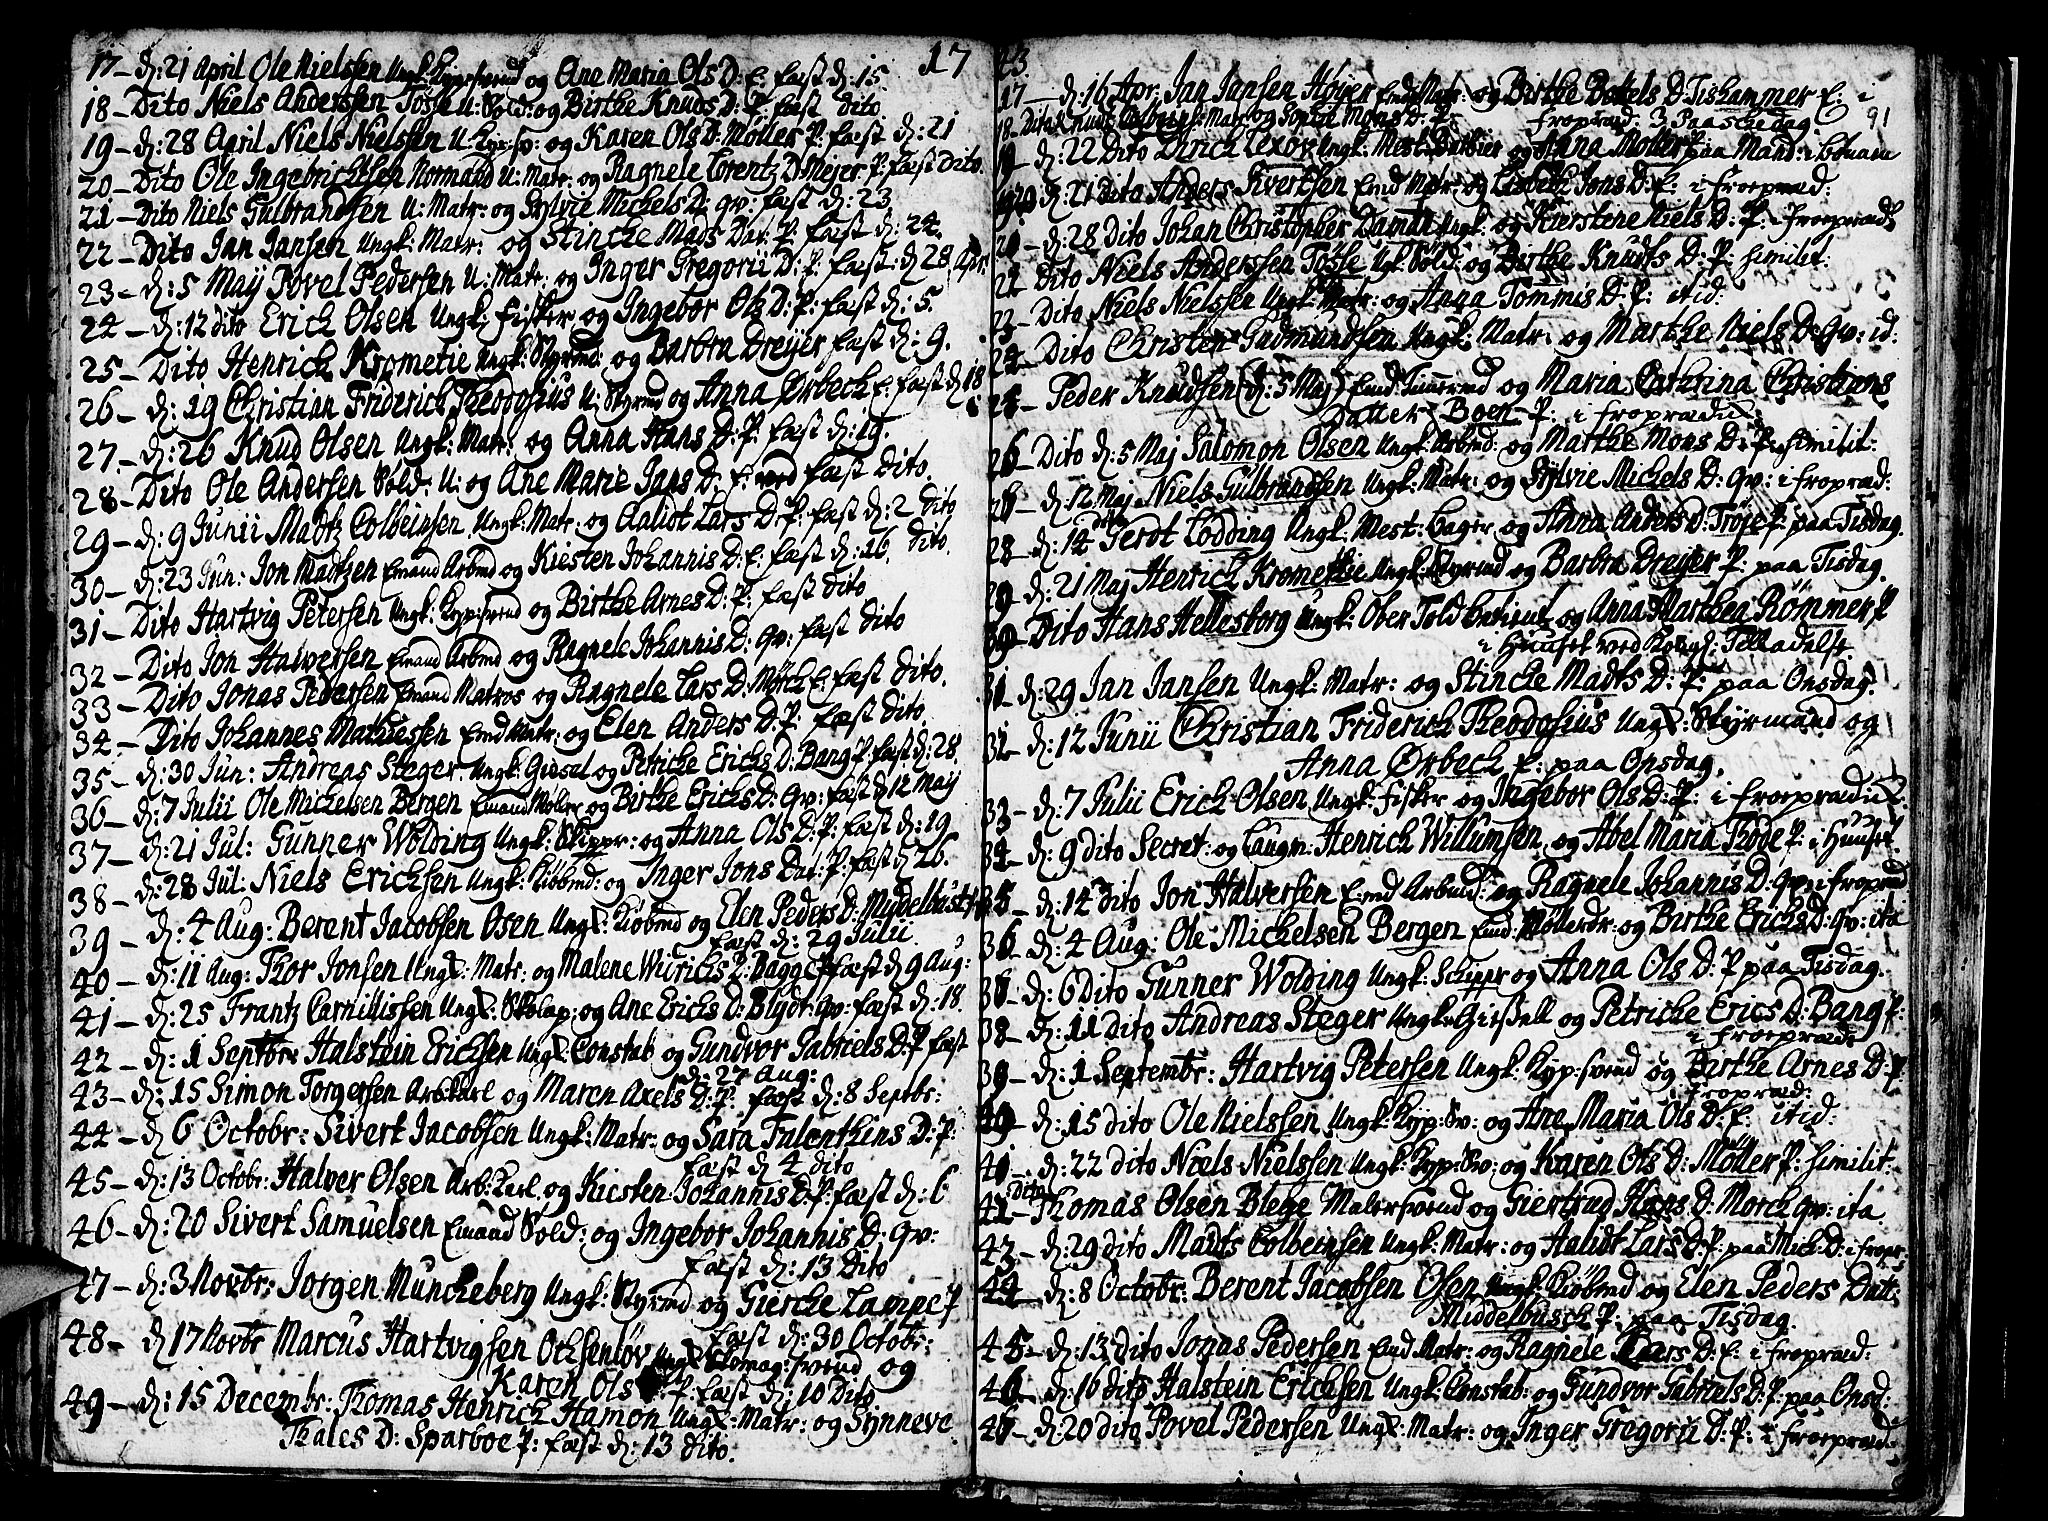 17
17 – d: 21 April Ole Nielssen Ungk: Kypsvend og Ane Maria Ols D: E. fæst d: 15.
18 – Dito Niels Anderssen Tosse U: Sold: og Birthe Knuds D: P. fæst dito
19 – d: 28 April Niels Nielssen U: Kyp:sv: og Karen Ols D: Møller P: fæst d: 21
20 – Dito Ole Ingebrichtsen Normand U: Matr: og Ragnele Lorentz D: Mejer P: fæst Dito.
21 – Dito Niels Gulbrandsen U: Matr: og Sylvie Michels D: qv: fæst d: 23
22 – Dito Jan Jansen Ungk: Matr: og Stincke Mads Dat: P. fæst d: 24.
23 – d: 5 Maij Povel Pedersen U: Matr: og Inger Gregorii D: P: fæst: d: 28 Apr:
24 – d: 12 dito Erich Olsen Ungk: Fisker og Ingebor Ols D: P: fæst d: 5.
25 – Dito Henrich Krometie Ungk: Styrmd: og Barbra Dreijer fæst d: 9.
26 – d: 19 Christian Friderich Theodosius U: Styrmd og Anna Ørbech E. fæst d 18
27 – d: 26 Knud Olsen Ungk: Matr: og Anna Hans D: P: fæst d: 19.
28 – Dito Ole Andersen Sold: U: og Ane Marie Jans D: E: fæst dito.
29 – d: 9 Junii Madtz Colbeinsen Ungk: Matr: og Aalidt Lars D: P: fæst d: 2 dito
30 – d: 23 Jun: Jon Madtzen Emand Arbmd og Kiesten Johannis D: E: fæst d: 16. dito.
31 – Dito Hartvig Petersen Ungk: Kyp:svend og Birthe Arnes D: P: fæst dito
32 – Dito Jon Halversen Emand Arbmd og Ragnele Johannis D: qv: fæst dito
33 – Dito Jonas Pedersen Emand Matros og Ragnele Lars D: Mørch E. fæst dito.
34 – Dito Johannes Mathiessen Emd Matr: og Elen Anders D: P: fæst dito.
35 – d: 30 Jun: Andreas Steger Ungk: Giesel og Petriche Erichs D: Bang P. fæst d: 28.
36 – d: 7 Julii Ole Michelsen Bergen Emand Møller og Birthe Erichs D: qv: fæst d 12 Maij
37 – d: 21 Jul: Gunner Wolding Ungk: Skippr: og Anna Ols D: P: fæst d: 19
38 – d: 28 Jul: Niels Erichsen Ungk: Kiøbmd: og Inger Jons Dat: P: fæst d 26.
39 – d: 4 Aug: Berent Jacobsen Osen Ungk: Kiøbmd og Elen Peders D: Mydelbusch
fæst d: 29 Julii.
40 – d: 11 Aug: Thor Jonsen Ungk: Matr: og Malene D: Bagge P fæst d 9 Aug:
41 – d: 25 Frantz Carnilissen Ungk: Skolap: og Ane Erichs D: Blydt qv: fæst d: 18.
42 – d: 1 Septbr: Halstein Erichsen Ungk: Constab og Gundvor Gabriels D: P fæst
d: 27 Aug:
43 – d: 15 Simon Torgersen Arbkarl og Maren Axels D: P. fæst d: 8 Septbr:
44 – d 6 Octobr: Sivert Jacobsen Ungk: Matr: og Sara Falentkins D: P:
fæst d 4 dito
45 – d: 13 Octobr: Halver Olsen Arb:karl og Kiesten Johannis D: P: fæst d: 6
46 – d: 20 Sivert Samuelsen Emand Sold: og Ingebor Johannis D: qv:
fæst d: 13 Dito
47 – d: 3 Novbr: Jorgen Muncheberg Ungk: Styrmd og Giercke Lampe P
fæst d: 30 Octobr:
48 – d 17 Novbr Marcus Hartvigsen Ochsenløv Ungk Slomag:svend og
Karen Ols P: fæst d: 10 Dito
49 – d: 15 Decembr: Thomas Henrich Hamon Ungk: Matr: og Synneve
Thales D: Sparboe P: fæst d: 13 dito.
43.
91
17 – d: 16 Apr: Jan Jansen Høyer Emd Matr: og Birthe D: Tishammer E: i
Fropræd: 3 Paaschedag
18 – Dito Matr: og Sophia Mons D: P.
19 – d: 22 Dito Dirich Lexov Ungk: Mest: Barbier og Anna Møller P paa Mand:
20 d: 21 dito Anders Sivertsen Emd Matr: og Lisbeth Jons D: E: i Froepræd:
21 – d: 28 Dito Johan Christopher Daman Ungk: og Kierstine Niels D: P: i Froepræd:
22 Dito Niels Anderssen Tosse Ugk: Sold: og Birthe Knudts D: P: similit:
23 – Dito Niels Nielssen Ungk: Matr: og Anna Tommis D: P: itid:
24 – Dito Christen Gudmundsen Ungk: Matr: og Marthe Niels D: qv: id:
25 – Peder Knudsen (d: 5 Maj) Emd Timrmd og Maria Cathrina Christians
Datter Boen P: i Froprædic:
26 – Dito d: 5 Maj Salomon Olsen Ungk: Arbmd: og Marthe Mons D: P. similit:
27 – d: 12 Maj Niels Gulbrandsen Ungk: Matr: og Sylvie Michels D: qv: i Froepræd:
28 – d: 14 dito Gerdt Lodding Ungk: Mest: Bager og Anna Anders D: Trøje P: paa Tisdag.
29 – d: 21 Maj Henrich Krometkie Ungk: Styrmd og Barbra Dreijer P: paa Tisdag.
30 – Dito Hans Hellesborg Ungk: Ober Told betient og Anna Marthea Rømmer P
i Huuset ved Kongs: Telladelse
31 – d: 29 Jan Jansen Ungk: Matr: og Stincke Madts D: P: paa Onsdag.
32 – d: 12 Junii Christian Friderich Theodosius Ungk: Styrmand og
Anna Ørbech E: paa Onsdag.
33 – d: 7 Julii Erich Olsen Ungk: Fisker og Ingebor Ols D: P: i Froeprædic:
34 – d: 9 dito Secret: og Laugm: Henrich Willumsen og Abel Maria Thode P: i Huuset.
35 – d: 14 dito Jon Halversen Emd Arbmd: og Ragnele Johannis D: qv: i Froepræd
36 – d: 4 Aug: Ole Michelsen Bergen Emd: Møllerdr: og Birthe Erichs D: qv: ita
37 – d: 6 Dito Gunner Wolding Ungk: Schippr og Anna Ols D: P paa Tisdag.
38 – d: 11 dito Andreas Steger Ungk: Giesell og Petriche Erics D: Bang P:
i Froepræd:
39 – d: 1 Septembr: Hartvig Petersen Ungk: Kyp:svend og Birthe Arnes D: P.
i Froepræd:
40 – d: 15 dito Ole Nielssen Ungk: Kyp: Sv: og Ane Maria Ols D: E: itid:
41 – d: 22 dito Niels Nielssen Ungk: Kyp: Sv: og Karen Ols D: Møller P: similit:
42 – Dito Thomas Olsen Blege Malersvend og Giertrud Hans D: Morch qv: ita
43 – d: 29 dito Madts Colbeinsen Ungk: Matr: og Aalidt Lars D: P: paa Mich: D: i Froepr:
44 – d: 8 Octobr: Berent Jacobsen Osen Ungk: Kiøbmd og Elen Peders Dat:
Middelbusch P: paa Tisdag.
45 – d: 13 dito Jonas Pedersen Emd Matr: og Ragnele Lars D: E: i Froepræd:
46 – d: 16 dito Halstein Erichsen Ungk: Constab: og Gundvor Gabriels D: P: paa Onsd:
47 – d: 20 dito Povel Pedersen Ungk: Matr: og Inger Gregorii D: P: i Froepræd: